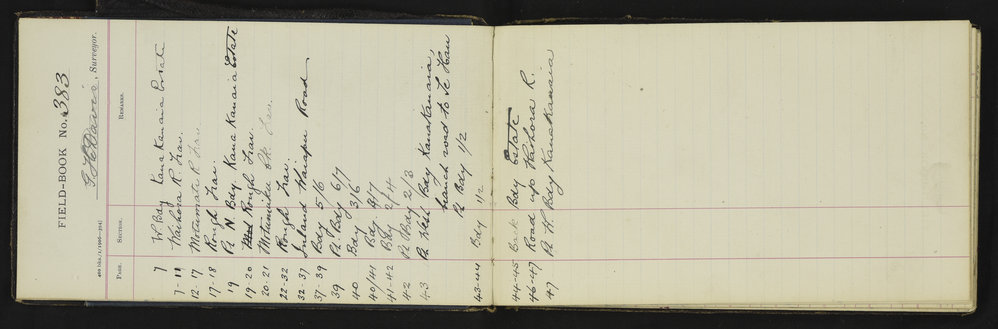 FIELD-BOOK No. 383
G H Davis, Surveyor.
400 bks./1/1906—314]
PAGE. SECTION. REMARKS.
7 W Bdy Kanakanaia Estate
7-11 Waihora R Trav.
12-17 Motumate R Trav
17-18 Rough Trav
19 Pt N Bdy Kanakanaia Estate
19-20 Rough Trav.
20-21 Trav.
22-32 Rough Trav.
32-37 Inland Road
37-39 Bdy 5/6
39 Pt. Bdy 6/7
40 Bdy 3/6
40/41 Bdy. 4/7
41-42 Bdy 2/4
42 Pt Bdy 2/3
43 Pt West Bdy Kanakanaia
branch road to Te Hau
Pt Bdy 1/2
43-44 Bdy 1/2
44-45 Back Bdy Estate
46-47 Road up Waihora R.
47 Pt W. Bdy Kanakanaia